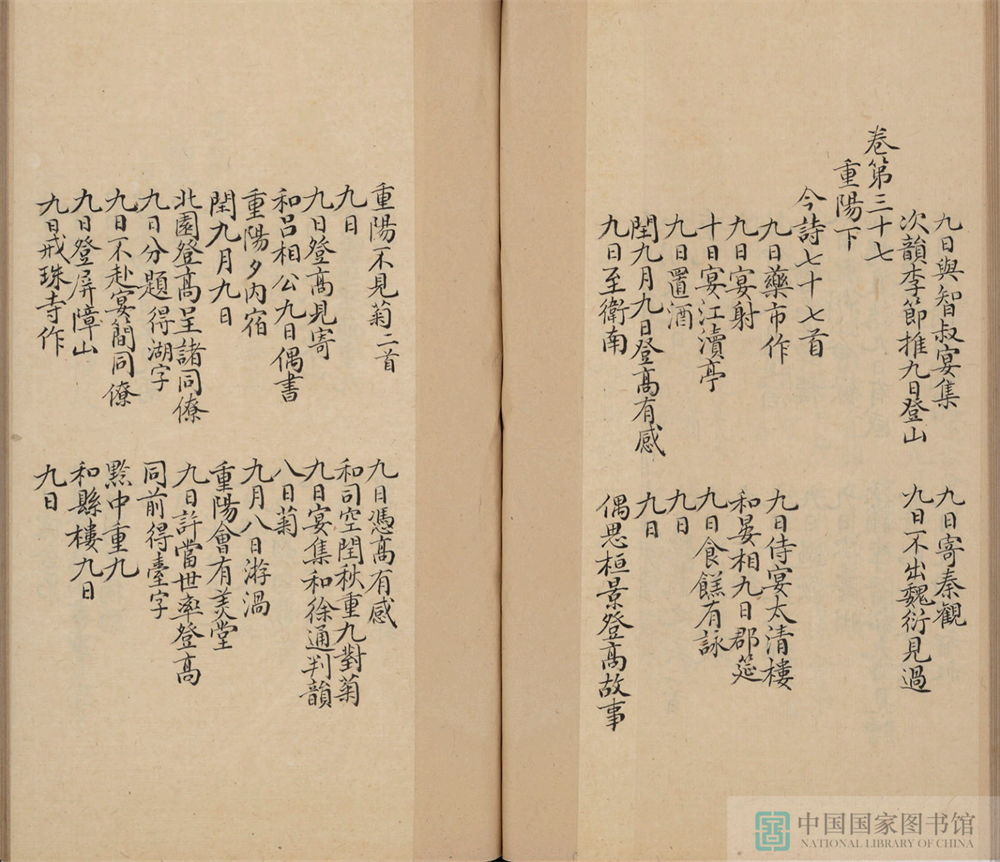 九日與智叔宴集　九日寄秦觀
次韻李節推九日登山　九日不出魏衍見過
卷第三十七
重陽下
今詩七十七首
九日藥市作　九日侍宴太清樓
九日宴射　和晏相九日郡筵
十日宴江瀆亭　九日食餻有詠
九日置酒　九日
閏九月九日登高有感　九日
九日至衛南　偶思桓景登高故事
重陽不見菊二首　九日憑高有感
九日　和司空閏秋重九對菊
九日登高見寄　九日宴集和徐通判韻
和呂相公九日偶書　八日菊
重陽夕內宿　九月八日游渦
閏九月九日　重陽會有美堂
北園登高呈諸同僚　九日許當世率登高
九日分題得湖字　同前得臺字
九日不赴宴簡同僚　黔中重九
九日登屏障山　和縣樓九日
九日戒珠寺作　九日
中国国家图书馆
NATIONAL LIBRARY OF CHINA